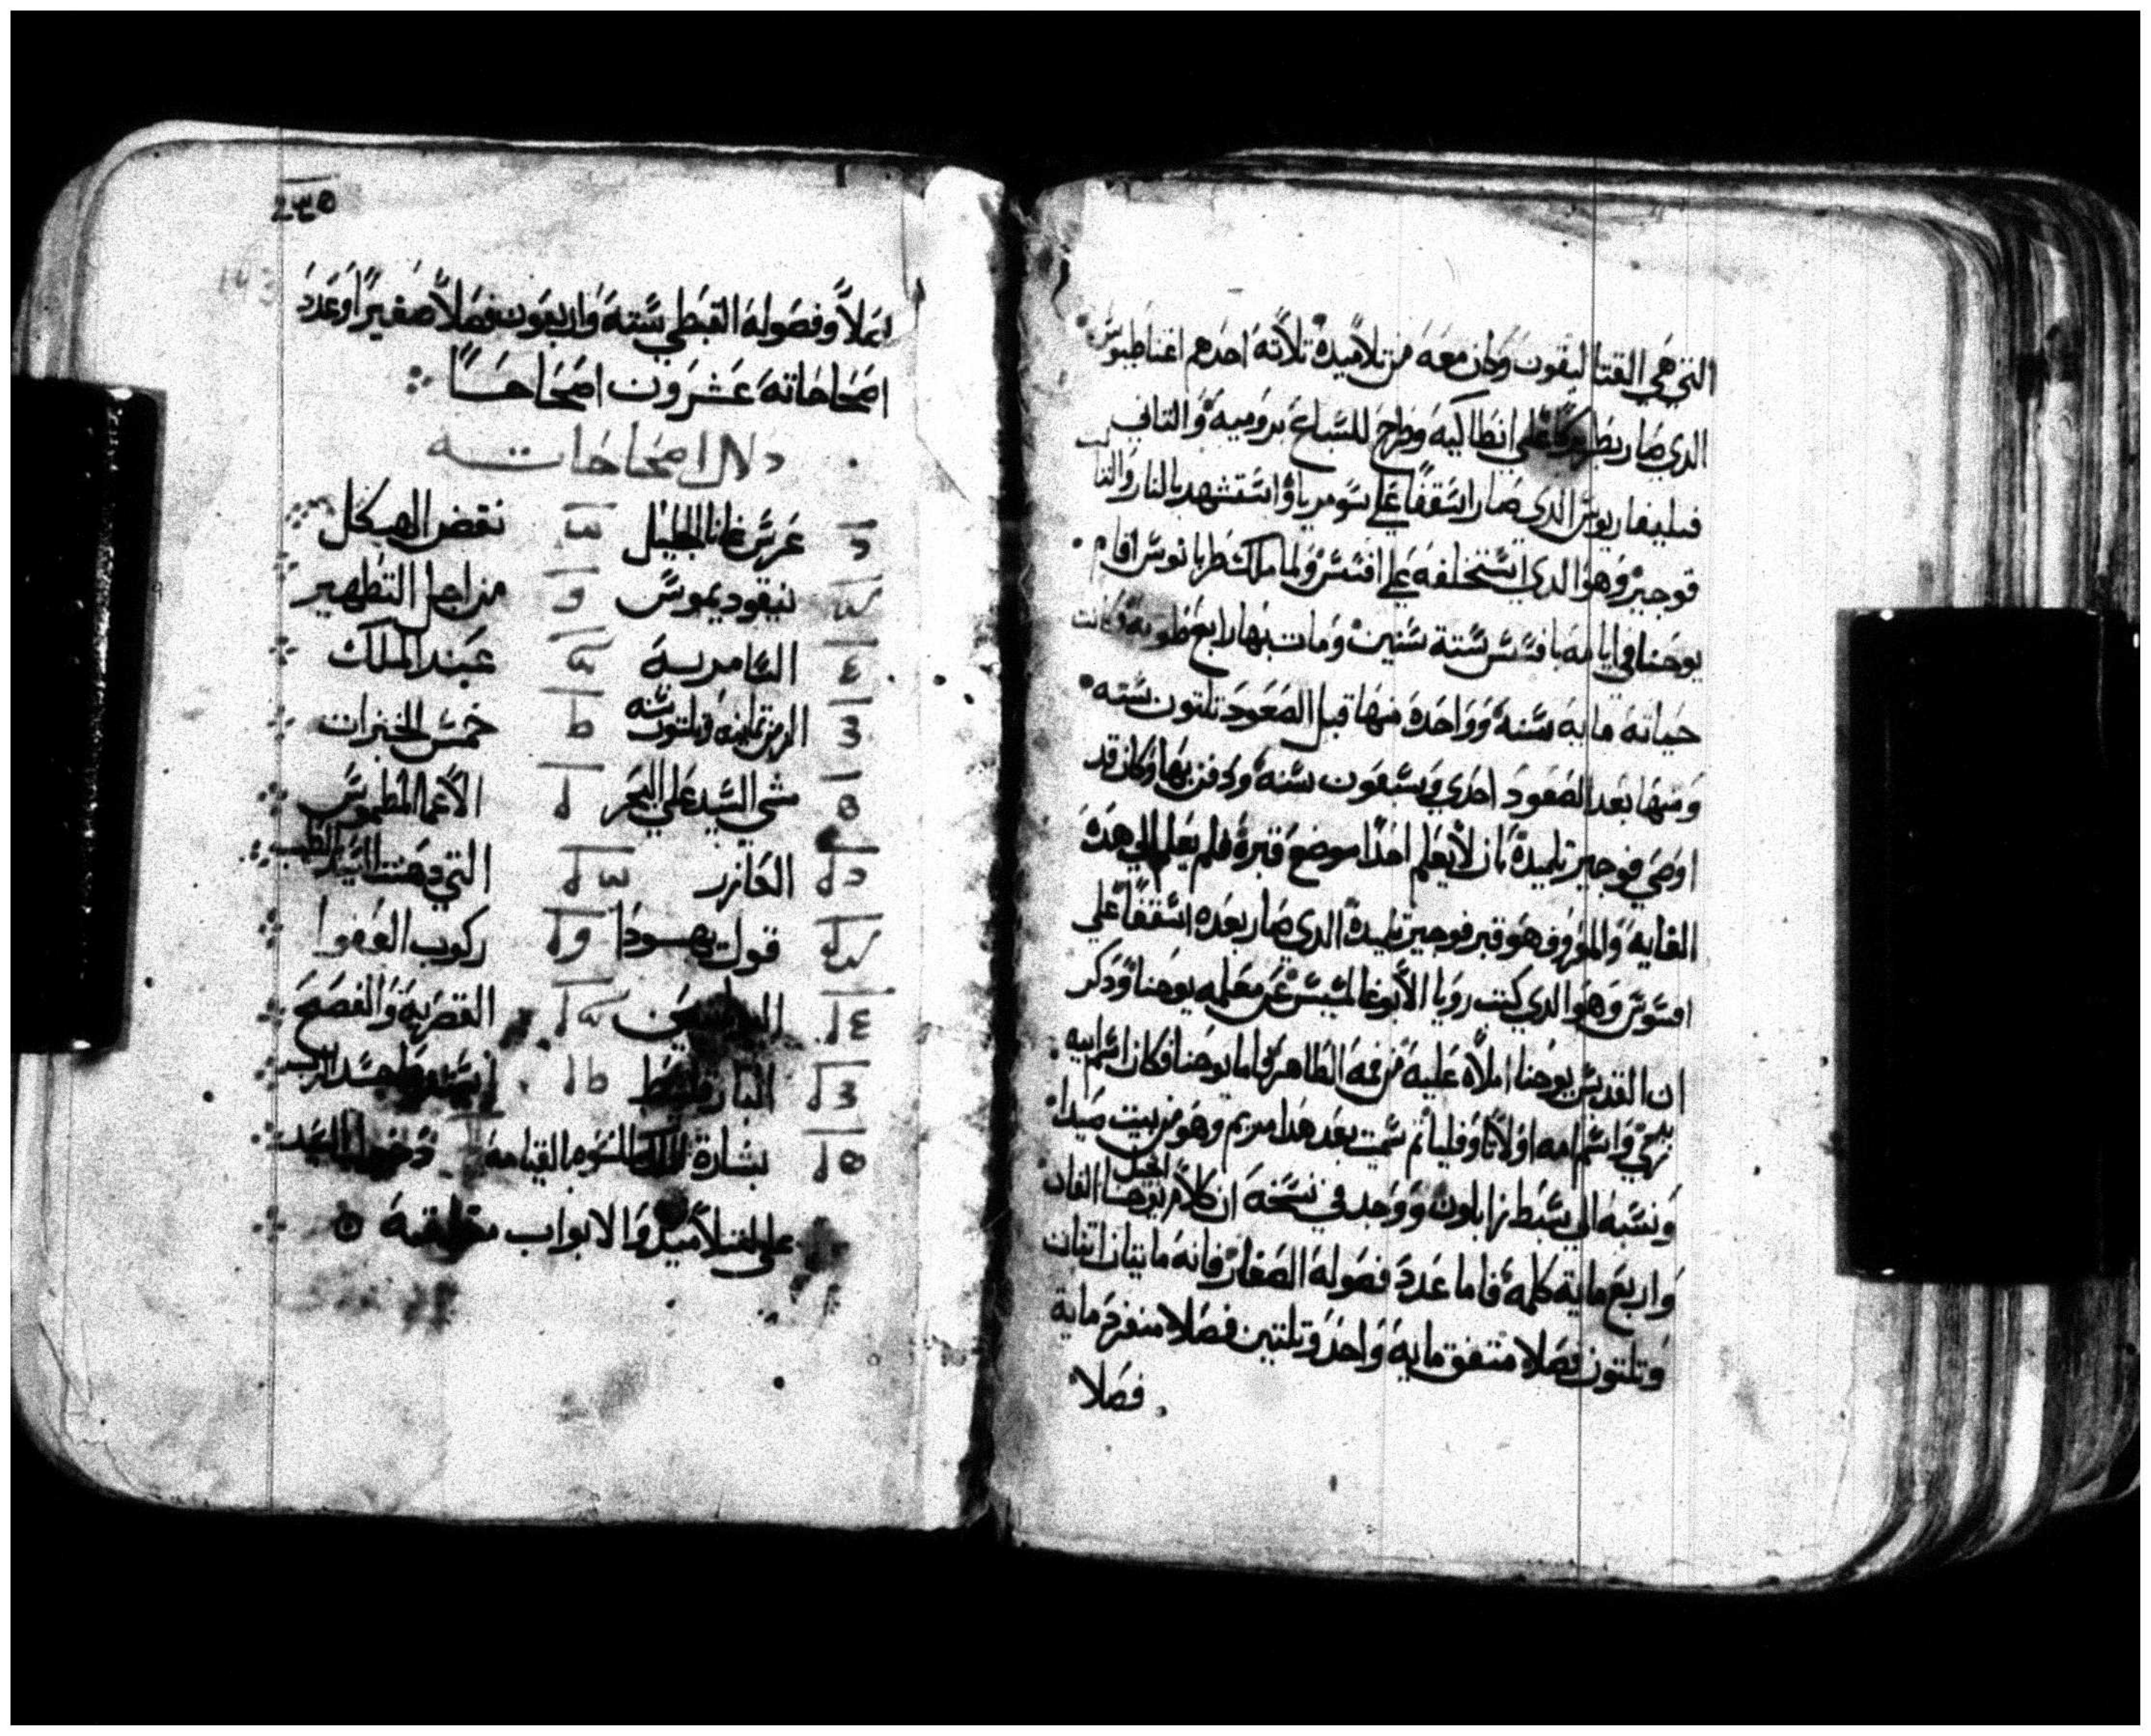 التي هي القتاليقون وكان معه من تلاميده تلاته احدهم اغناطيوس
الدي صار بطريركا علي انطاكيه وطرح للسباع بروميه والتاني
فىليفاريوس الدي صار اسقفا علي سومريا واستشهد بالنار والتا
لت
قوجير وهو الدي استخلفه علي افسس ولما ملك طريانوس اقام
يوحنا في ايامه بافسس سته سنين ومات بها رابع طوبه وكانت
حياته مايه سنه وواحده منها قبل الصعود تلتون سته
ومنها بعد الصعود احدي وسبعون سنه ودفن بها وكان قد
اوصي فوجير تلميده بان لا يعلم احدا موضع قبره فلم يعلم الي هده
الغايه والمعروف هو قبر فوجير تلميده الدي صار بعده اسقفا علي
افسوس وهو الدي كتب رويا الابوغالمسيس عن معلمه يوحنا ودكر
ان القديس يوحنا املاه عليه من فمه الطاهر فاما يوحنا فكان اسم ابيه
واسم امه اولا تم سميت بعد هدا مريم وهو من بيت صيدا
ونسبه الي سبط زابلون ووجد في نسخه ان كلام انجيل يوحنا الفان
واربع مايه كلمه فاما عدد فصوله الصغار فانه مايتان اتنان
وتلتون فصلا متفق مايه واحد وتلتين فصلا منفرد مايه
فصلا
فصلا وفصوله القبطي سته واربعون فصلا صغيرا وعدد
اصحاحاته عشرون اصحاحا
دلال اصحاحاته
عرس قانا الجليل نقض الهيكل
نيقوديموس من اجل التطهير
السامريه عبد الملك
المزمن تمانيه وتلتون سنه خمس الخبزات
مشي السيد علي البحر الاعما المطموس
العازر التي دهنت السيد بالطيب
قول يهودا ركوب العفوا
القصريه والفصح
البارقليط
بشارة القيامه دخول السيد
علي التلاميد والابواب مغلقه